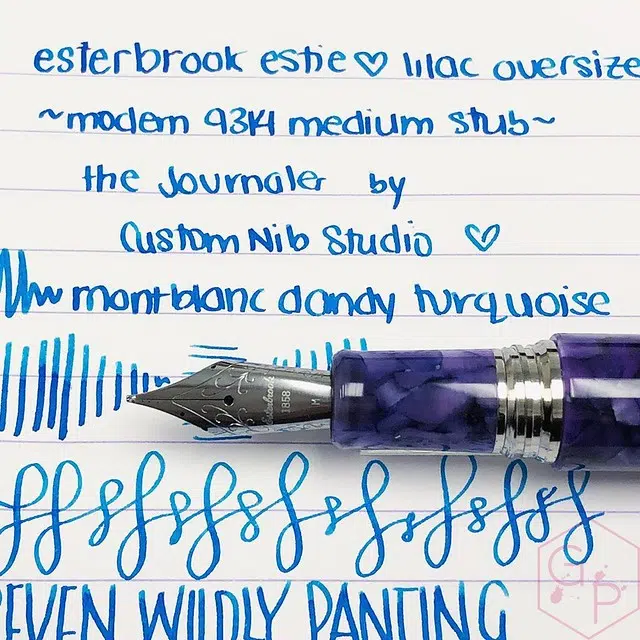 esterbrook estie♡ lilac oversize
~modern 93K medium stub~
the Journaler by
Custom Nib Studio ♡
montblanc dandy turquoise
Esterbrook
1858
M
EVEN WILDLY PANTING
GP